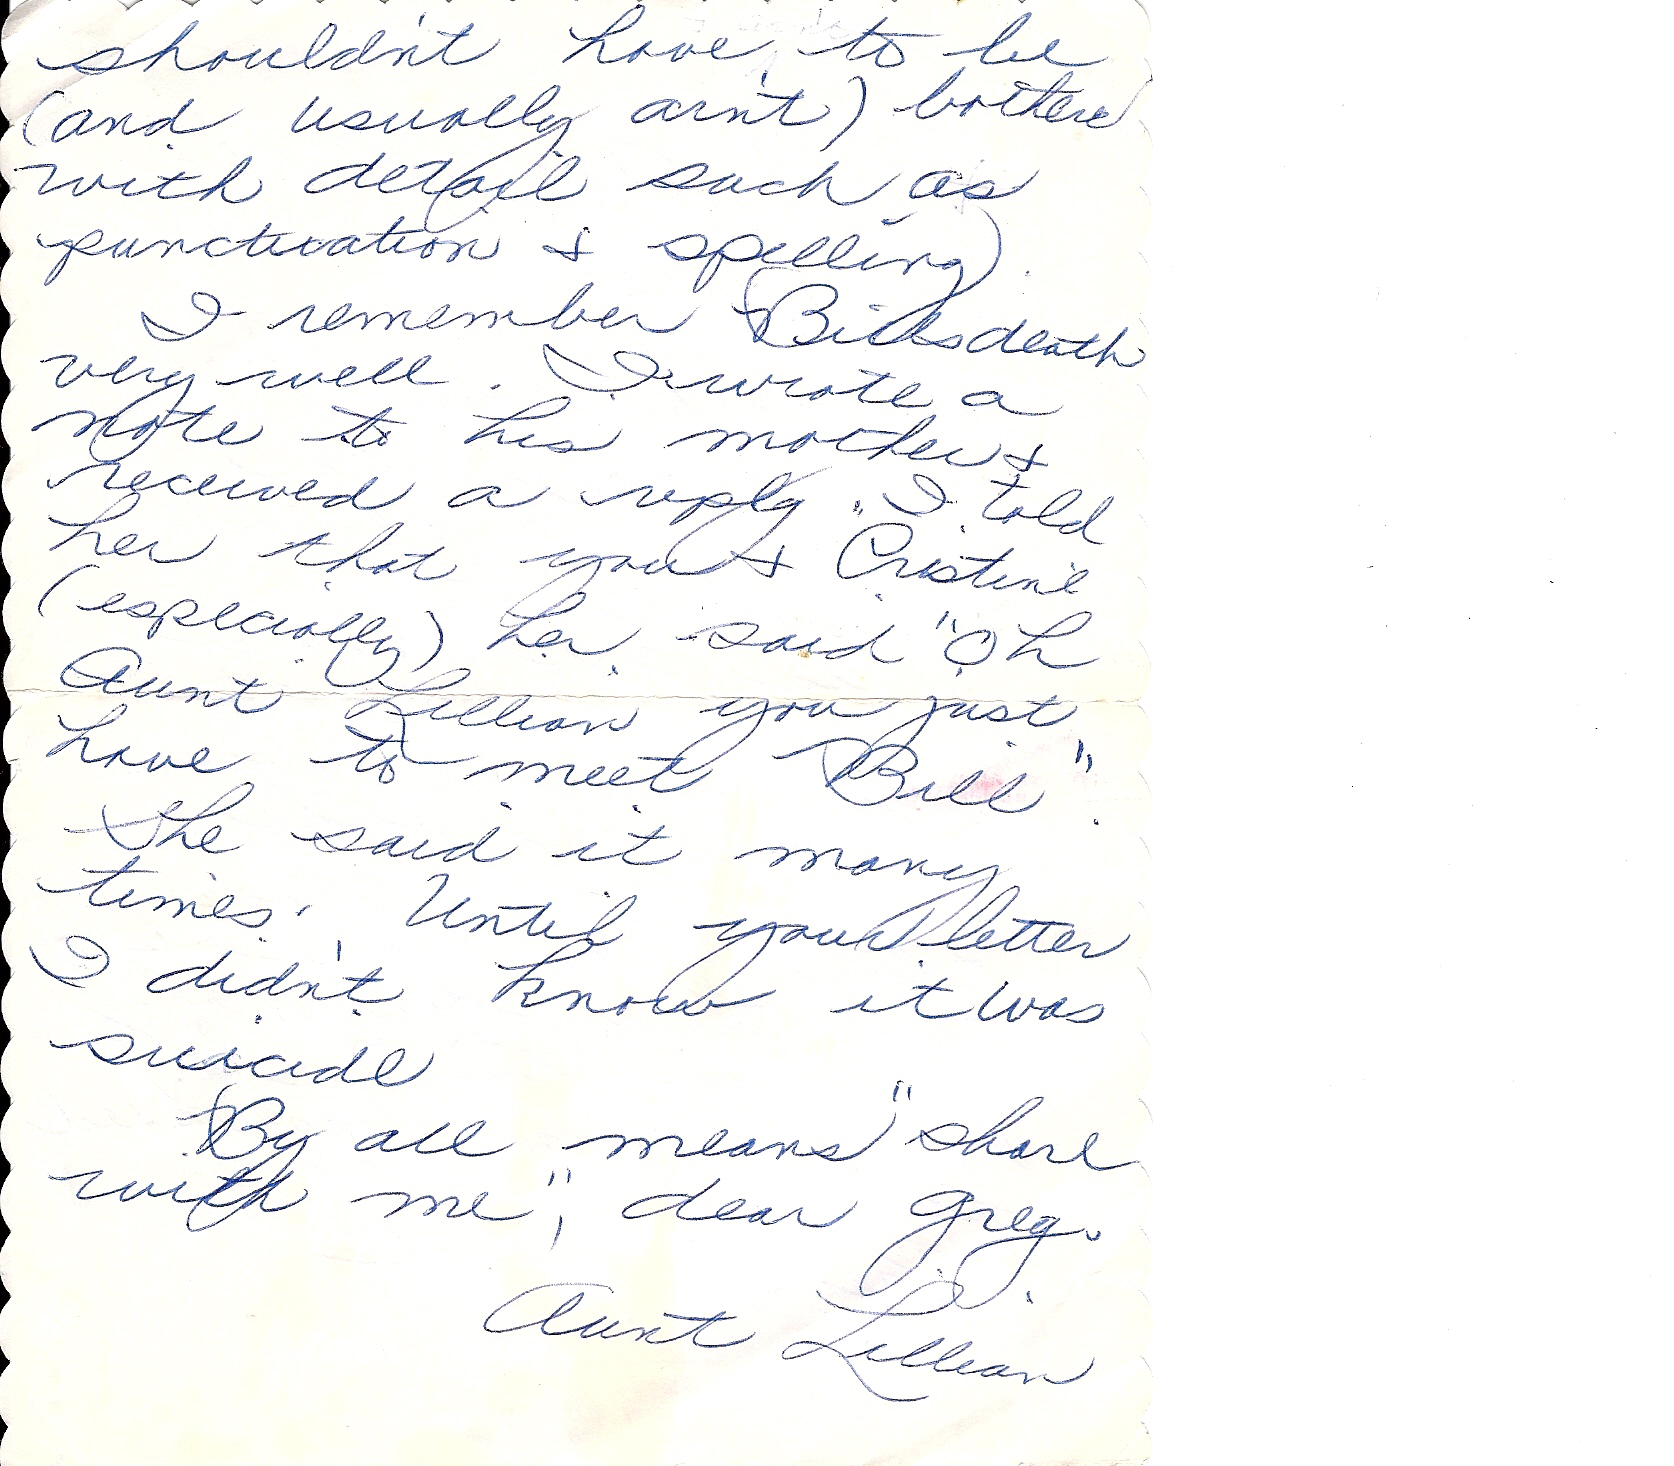 shouldn't have to be
(and usually arn't) bothere
with detail such as
punctuation & spelling).
I remember Bills death
very well. I wrote a
note to his mother &
received a reply. I told
her that you & Cristine
(especially) her said "Oh
Aunt Lillian you just
have to meet Bill".
She said it many
times. Until your letter
I didn't know it was
suicide
By all means "share
with me", dear Greg.
Aunt Lillian